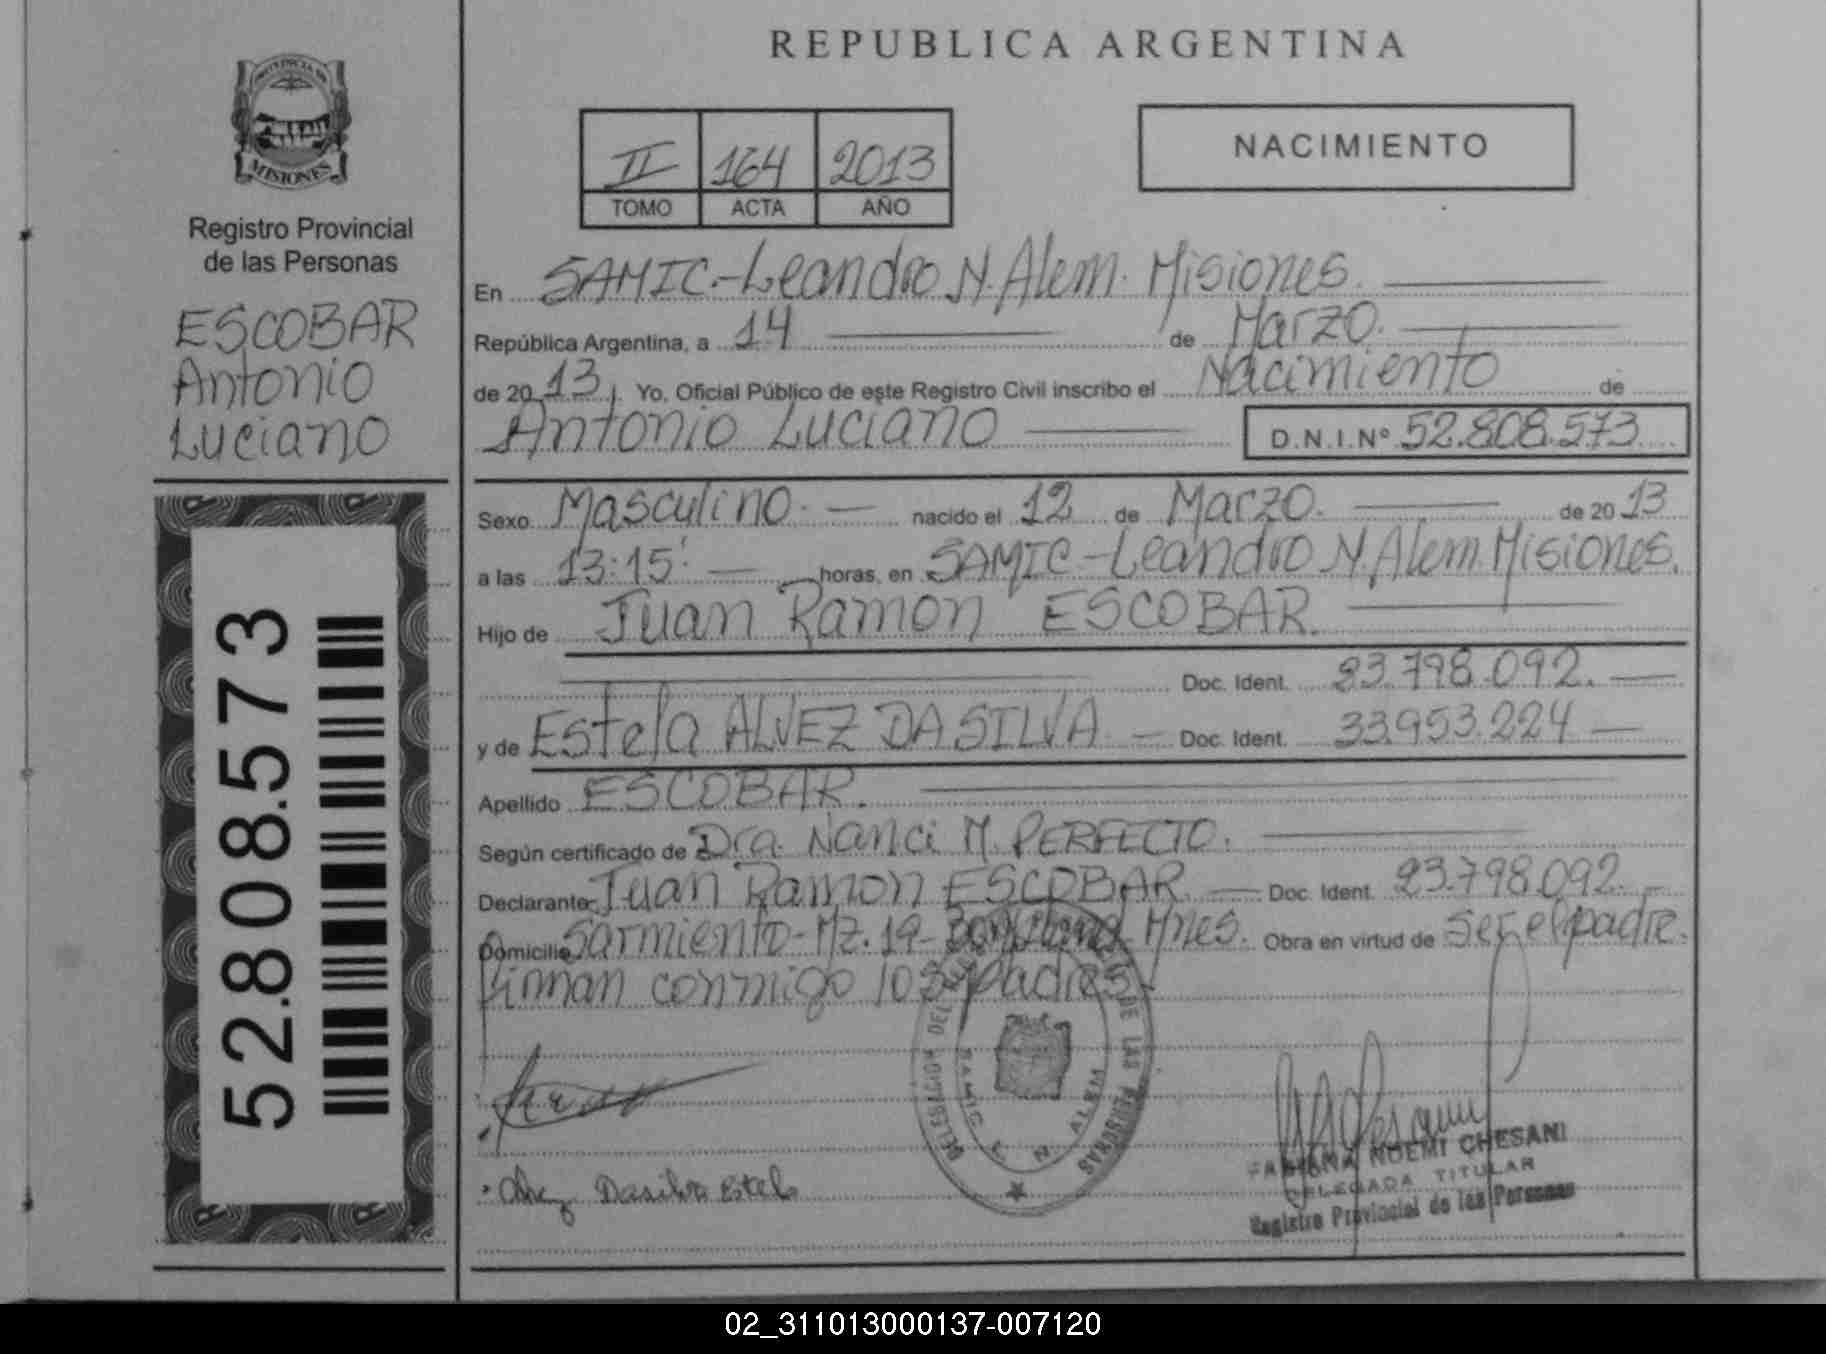 REPUBLICA ARGENTINA
PROVINCIA DE
MISIONES
Registro Provincial
de las Personas
ESCOBAR
Antonio
Luciano
52.808.573
II 164 2013
TOMO ACTA AÑO
NACIMIENTO
En SAMIC.-Leandro N. Alem. Misiones.
República Argentina, a 14 de Marzo.
de 2013. Yo, Oficial Público de este Registro Civil inscribo el Nacimiento de
Antonio Luciano D.N.I.Nº 52.808.573
Sexo Masculino. nacido el 12 de Marzo. de 2013
a las 13:15' horas, en SAMIC-Leandro N. Alem. Misiones.
Hijo de Juan Ramon ESCOBAR.
Doc. Ident. 23.798.092.
y de Estela ALVEZ DA SILVA Doc. Ident. 33.953.224
Apellido ESCOBAR.
Según certificado de Dra. Nanci M. PERFECTO.
Declarante Juan Ramon ESCOBAR Doc. Ident. 23.798.092.
Domicilio Sarmiento-Mz. 19- Mnes. Obra en virtud de ser el padre.
firman conmigo los padres
DELEGACION DEL DE LAS PERSONAS
SAMIC L. N. ALEM
Dasilva Estela
FABIANA NOEMI CHESANI
DELEGADA TITULAR
Registro Provincial de las Personas
02_311013000137-007120